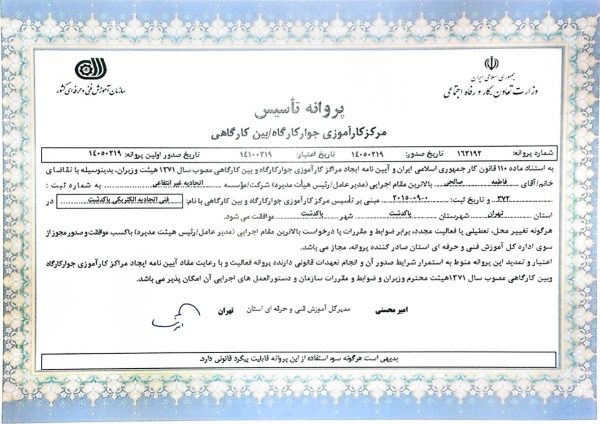 جمهوری اسلامی ایران
وزارت تعاون، کار و رفاه اجتماعی
سازمان آموزش فنی و حرفه ای کشور
پروانه تأسیس
مرکز کارآموزی جوار کارگاه/بین کارگاهی
شماره پروانه: ۱۶۲۱۹۲ تاریخ صدور: ۱۴۰۵۰۲۱۹ تاریخ اعتبار: ۱۴۱۰۰۲۱۹ تاریخ صدور اولین پروانه: ۱۴۰۵۰۲۱۹
به استناد ماده ۱۱۰ قانون کار جمهوری اسلامی ایران و آیین نامه ایجاد مراکز کارآموزی جوارکارگاه و بین کارگاهی مصوب سال ۱۳۷۱ هیئت وزیران، بدینوسیله با تقاضای
خانم/آقای فاطمه صالحی بالاترین مقام اجرایی (مدیر عامل/رئیس هیأت مدیره) شرکت/مؤسسه اتحادیه غیر انتفاعی به شماره ثبت :
۳۷۲ و تاریخ ثبت: ۲۰۱۵-۰۹-۰ مبنی بر تأسیس مرکز کارآموزی جوارکارگاه و بین کارگاهی با نام: فنی اتحادیه الکتریکی پاکدشت در
استان تهران شهرستان پاکدشت شهر پاکدشت موافقت می شود.
هرگونه تغییر محل، تعطیلی یا فعالیت مجدد، برابر ضوابط و مقررات با درخواست بالاترین مقام اجرایی (مدیر عامل/رئیس هیئت مدیره) با کسب موافقت و صدور مجوز از
سوی اداره کل آموزش فنی و حرفه ای استان صادر کننده پروانه، مجاز می باشد.
اعتبار و تمدید این پروانه منوط به استمرار شرایط صدور آن و انجام تعهدات قانونی دارنده پروانه فعالیت و با رعایت مفاد آیین نامه ایجاد مراکز کارآموزی جوارکارگاه
وبین کارگاهی مصوب سال ۱۳۷۱هیئت محترم وزیران و ضوابط و مقررات سازمان و دستورالعمل های اجرایی آن امکان پذیر می باشد.
امیر محسنی مدیرکل آموزش فنی و حرفه ای استان تهران
بدیهی است هرگونه سوء استفاده از این پروانه قابلیت پیگرد قانونی دارد.